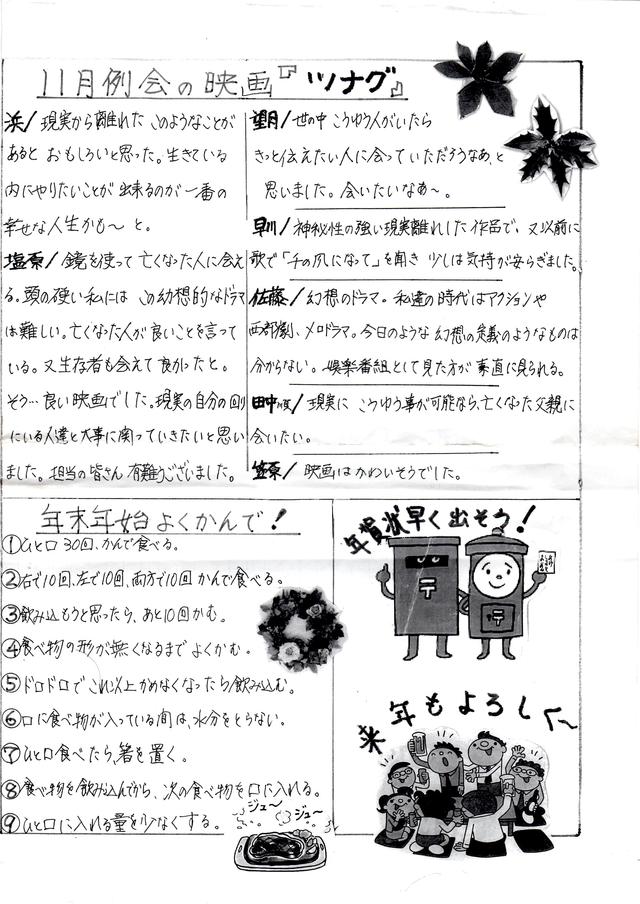 11月例会の映画『ツナグ』
浜/ 現実から離れた このようなことが
あると おもしろいと思った。生きている
内にやりたいことが 出来るのが一番の
幸せな人生かも〜 と。
塩原/ 鏡を使って 亡くなった人に会え
る。頭の硬い私には この幻想的なドラマ
は難しい。亡くなった人が良いことを言って
いる。又生存者も会えて良かったと。
そう…良い映画でした。現実の自分の回り
にいる人達と大事に関っていきたいと思い
ました。担当の皆さん 有難うございました。
望月/ 世の中 こうゆう人がいたら
きっと伝えたい人に会っていただろうなあ、と
思いました。会いたいなあ〜。
早川/ 神秘性の強い現実離れした作品で、又以前に
歌で「千の風になって」を聞き 少しは気持が安らぎました。
佐藤/ 幻想のドラマ。私達の時代はアクションや
西部劇、メロドラマ。今日のような 幻想の定義のようなものは
分からない。娯楽番組として見た方が 素直に見られる。
田中順/ 現実に こうゆう事が可能なら、亡くなった父親に
会いたい。
笠原/ 映画はかわいそうでした。
年末年始よくかんで!
①ひと口30回、かんで食べる。
②右で10回、左で10回、両方で10回 かんで食べる。
③飲み込もうと思ったら、あと10回かむ。
④食べ物の形が無くなるまで よくかむ。
⑤ドロドロで これ以上かめなくなったら飲み込む。
⑥口に食べ物が入っている間は、水分をとらない。
⑦ひと口食べたら、箸を置く。
⑧食べ物を飲み込んでから、次の食べ物を口に入れる。
⑨ひと口に入れる量を少なくする。
ジュ〜 ジュ〜
年賀状早く出そう!
〒 〒
来年もよろしく〜